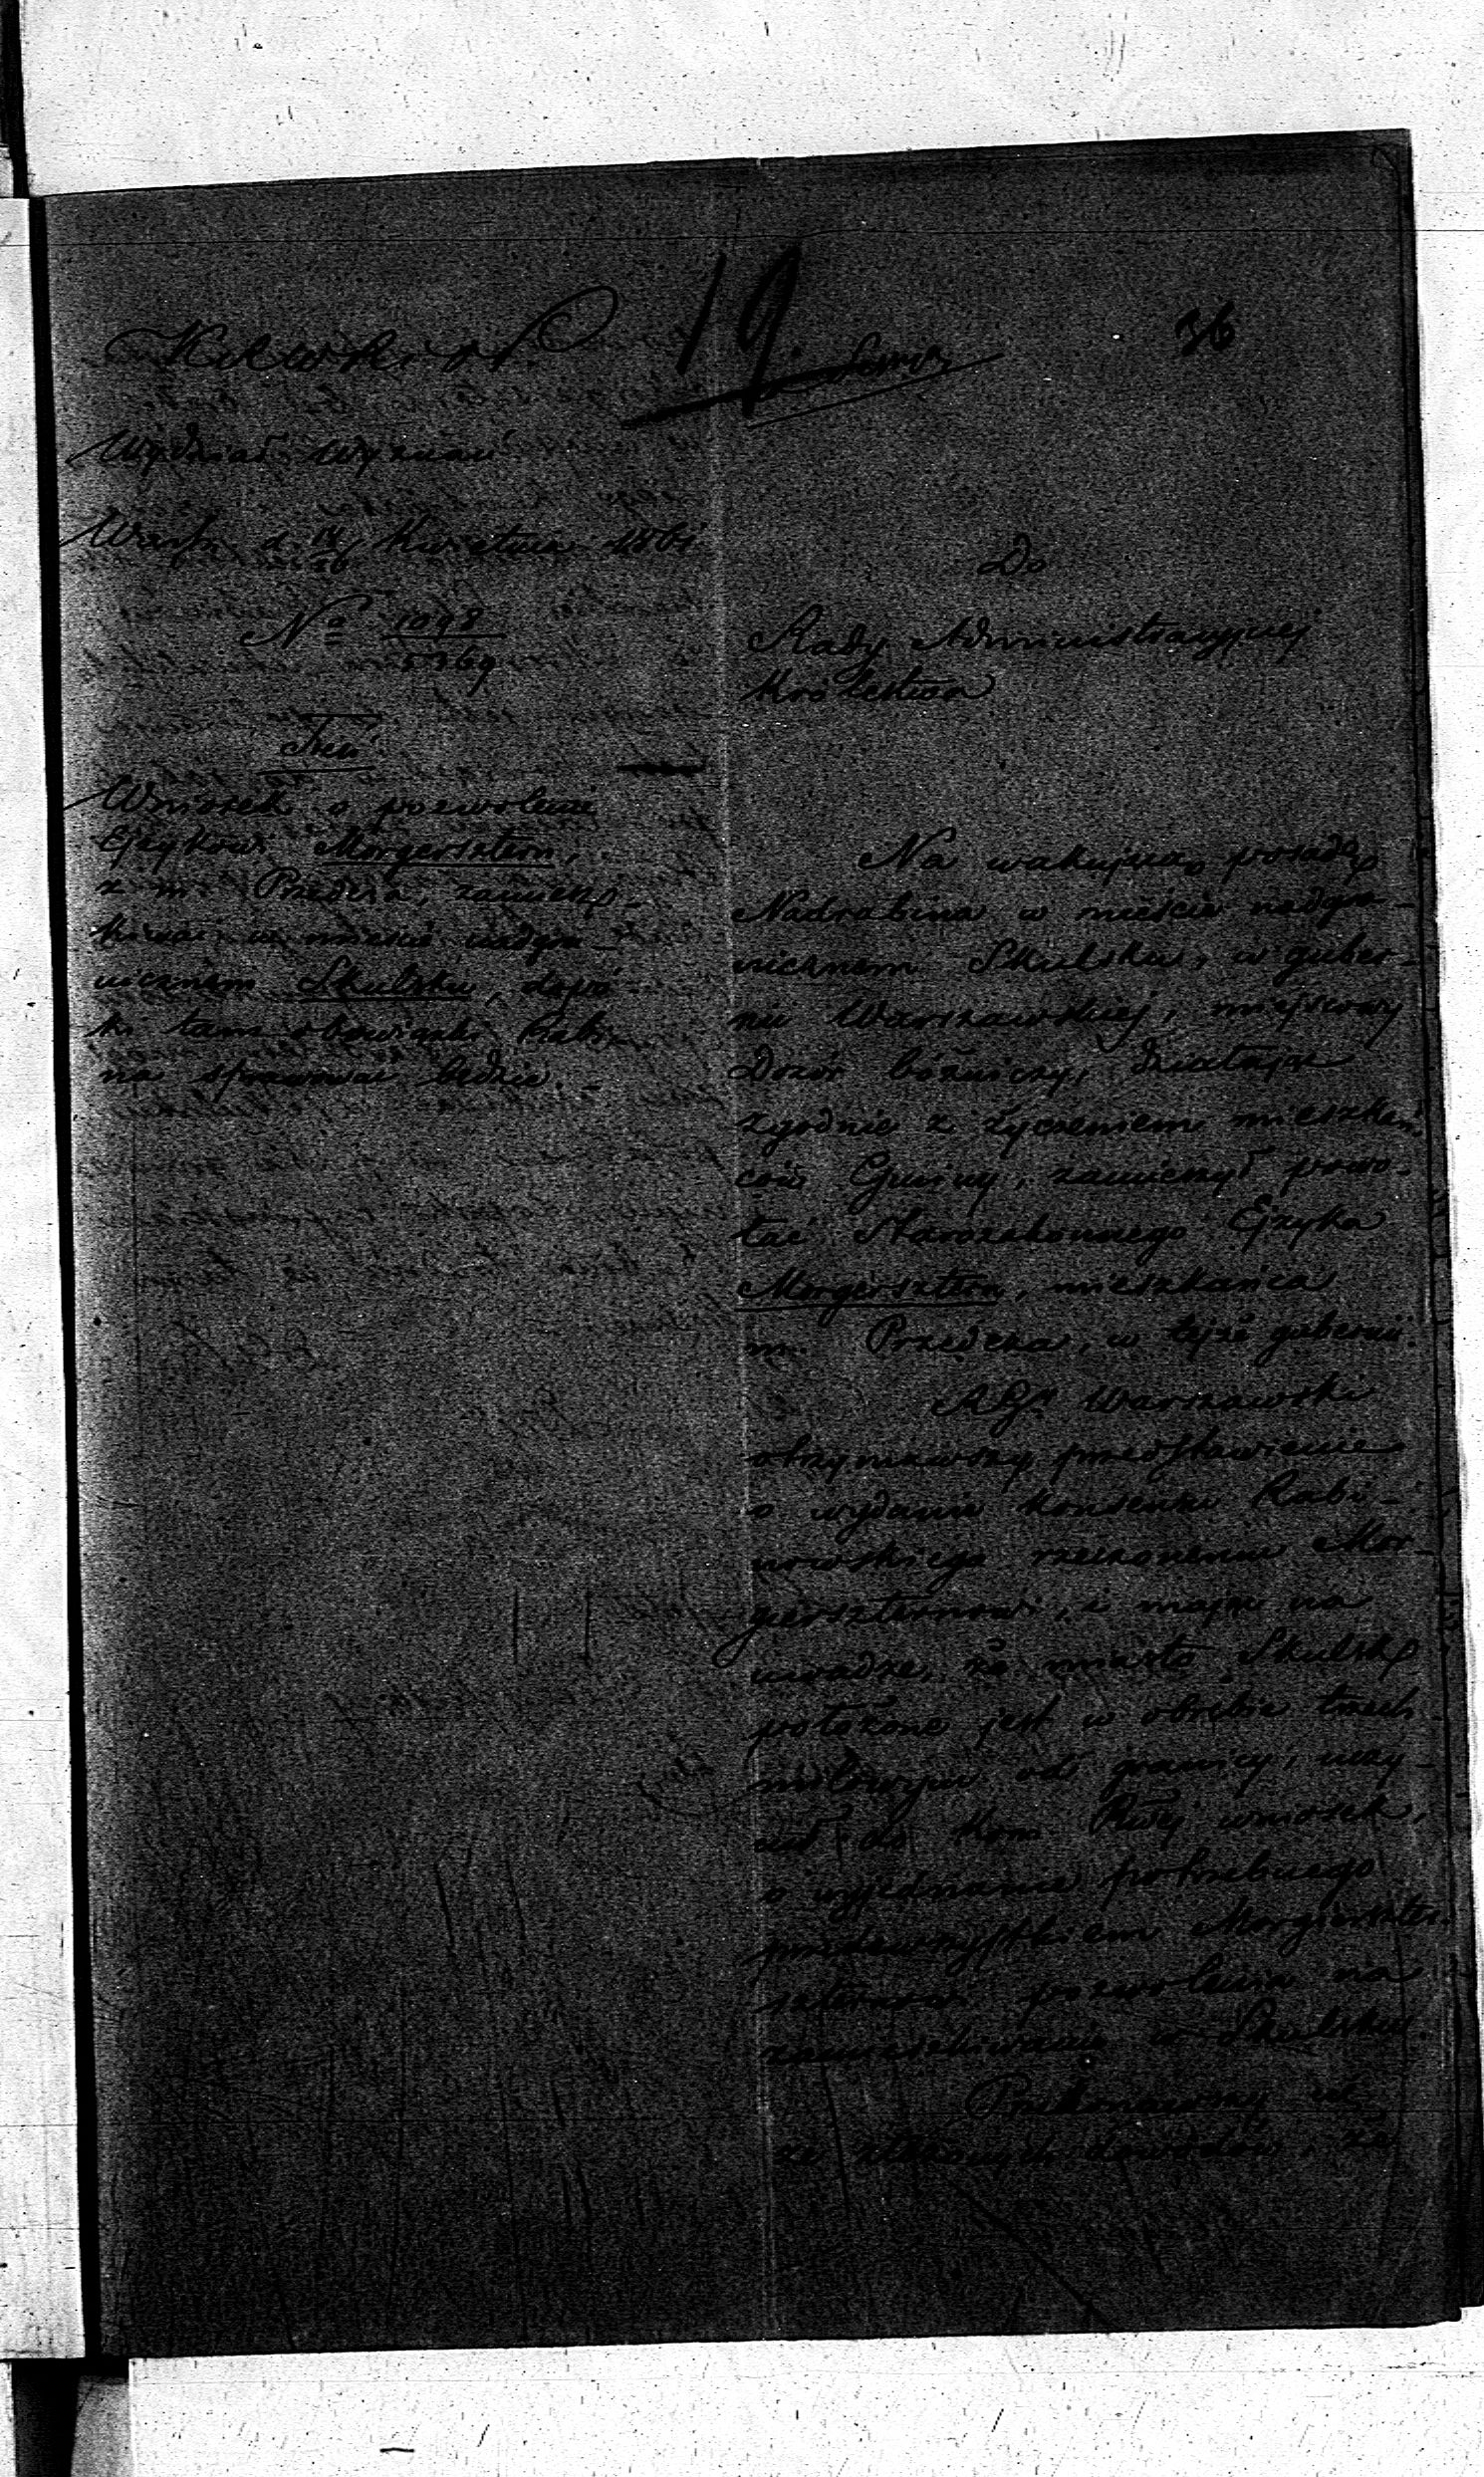 19
36
Wydział Wyznań
Warsz. d. 14/26 Kwietnia 1861.
No 1098/5369
Treść
Wniosek o pozwolenie
Ejzykowi Morgersztern,
z m. Przedcza, zamiesz-
kiwać w mieście nadgra-
nicznem Skulsku, dopó-
ki tam obowiązki Rabi-
na sprawować będzie.
Do
Rady Administracyjnej
Królestwa
Na wakującą posadę
Nadrabina w mieście nadgra-
nicznem Skulsku, w guber-
nii Warszawskiej, miejscowy
Dozór bóżniczy, działając
zgodnie z życzeniem mieszkań-
ców Gminy, zamierzył powo-
łać Starozakonnego Ejzyka
Morgersztern, mieszkańca
m. Przedcza, w tejże gubernii.
Warszawski
otrzymawszy przedstawienie
o wydanie konsensu Rabi-
nowskiego rzeczonemu Mor-
giersternowi, i mając na
uwadze, że miasto Skulsk
położone jest w obrębie trzech
milowym od granicy, uczy-
nił do Kom. Rząd. wniosek,
o wyjednanie potrzebnego
przedewszystkiem Morgierszter-
szternowi pozwolenia na
zamieszkiwanie w Skulsku.
Przekonawszy się
ze złożonych dowodów, że